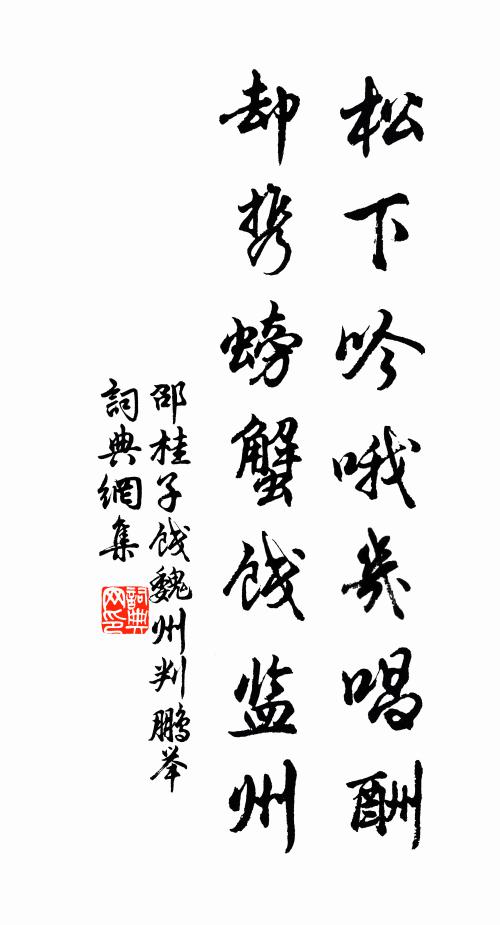 松下吟哦幾唱酬
却携螃蟹餞监州
邵桂子餞魏州判鵬举
詞典網集
詞典网印